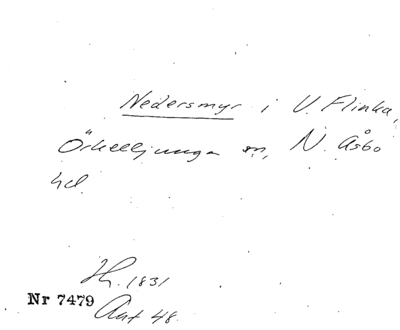 Nedersmyr i V. Flinka,
Örkelljunga sn, N. Åsbo
hd.
H. 1831
Nr 7479
Aat 48.